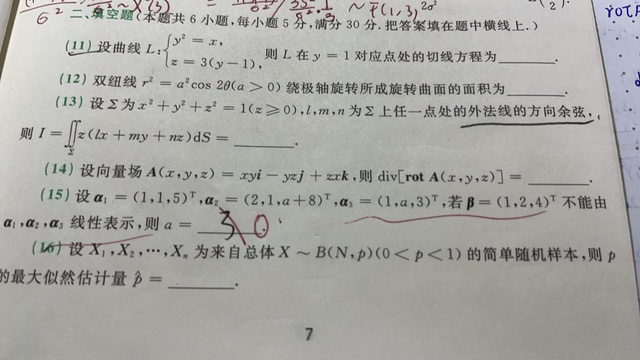 二、填空题(本题共 6 小题,每小题 5 分,满分 30 分.把答案填在题中横线上.)
(11) 设曲线 L:{y² = x, z = 3(y−1), 则 L 在 y = 1 对应点处的切线方程为______.
(12) 双纽线 r² = a²cos 2θ(a > 0) 绕极轴旋转所成旋转曲面的面积为______.
(13) 设 Σ 为 x² + y² + z² = 1(z ≥ 0), l, m, n 为 Σ 上任一点处的外法线的方向余弦,
则 I = ∬_Σ z(lx + my + nz)dS = ______.
(14) 设向量场 A(x,y,z) = xyi − yzj + zxk, 则 div[rot A(x,y,z)] = ______.
(15) 设 α₁ = (1,1,5)ᵀ, α₂ = (2,1,a+8)ᵀ, α₃ = (1,a,3)ᵀ, 若 β = (1,2,4)ᵀ 不能由
α₁, α₂, α₃ 线性表示, 则 a = 3 0.
(16) 设 X₁, X₂, ⋯, Xₙ 为来自总体 X ~ B(N,p)(0 < p < 1) 的简单随机样本, 则 p
的最大似然估计量 p̂ = ______.
7